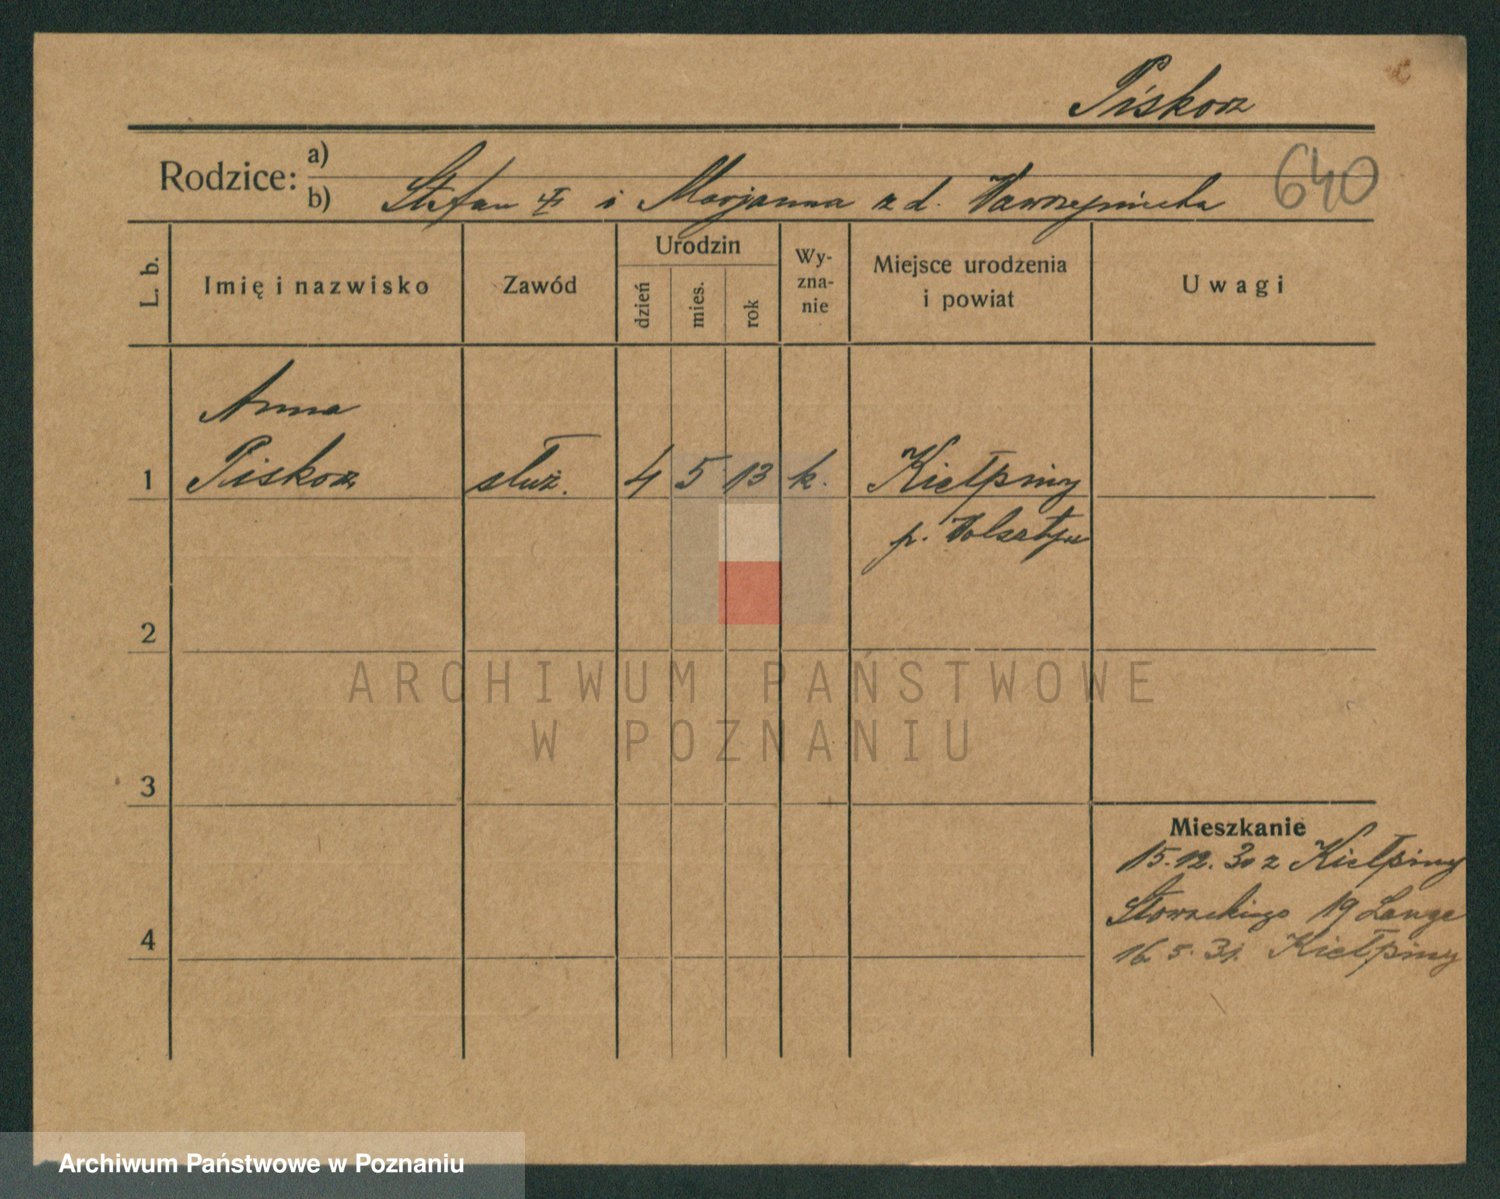 Piskorz
Rodzice:
a)
b) Stefan i Marjanna z d. Wawrzyniecka
640
L. b.
Imię i nazwisko
Zawód
Urodzin
dzień
mies.
rok
Wy-
zna-
nie
Miejsce urodzenia
i powiat
Uwagi
Anna
1 Piskorz służ. 4 5 13 k. Kiełpiny
p. Wolsztyn
2
3
4
Mieszkanie
15.12.30 z Kiełpiny
Słowackiego 19 Lange
16.5.31. Kiełpiny
ARCHIWUM PAŃSTWOWE
W POZNANIU
Archiwum Państwowe w Poznaniu